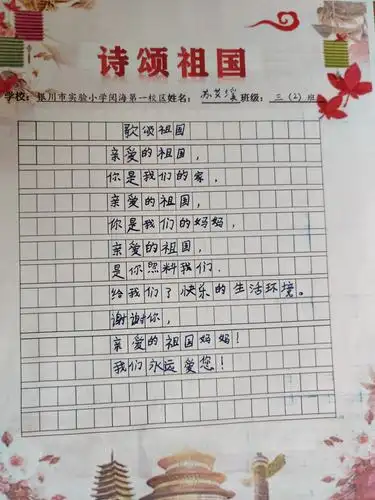 诗颂祖国
学校：银川市实验小学阅海第一校区姓名：苏艾溪 班级：三（2）班
歌颂祖国
亲爱的祖国，
你是我们的家，
亲爱的祖国，
你是我们的妈妈，
亲爱的祖国，
是你照料我们.
给我们了快乐的生活环境。
谢谢你，
亲爱的祖国妈妈！
我们永远爱您！